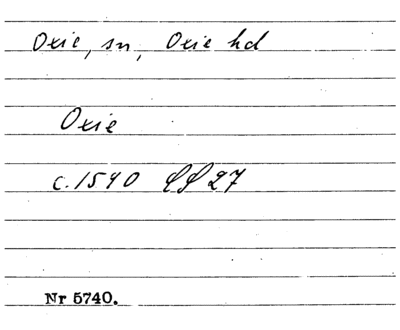 Oxie, sn, Oxie hd
Oxie
c. 1540 LP 27
Nr 5740.